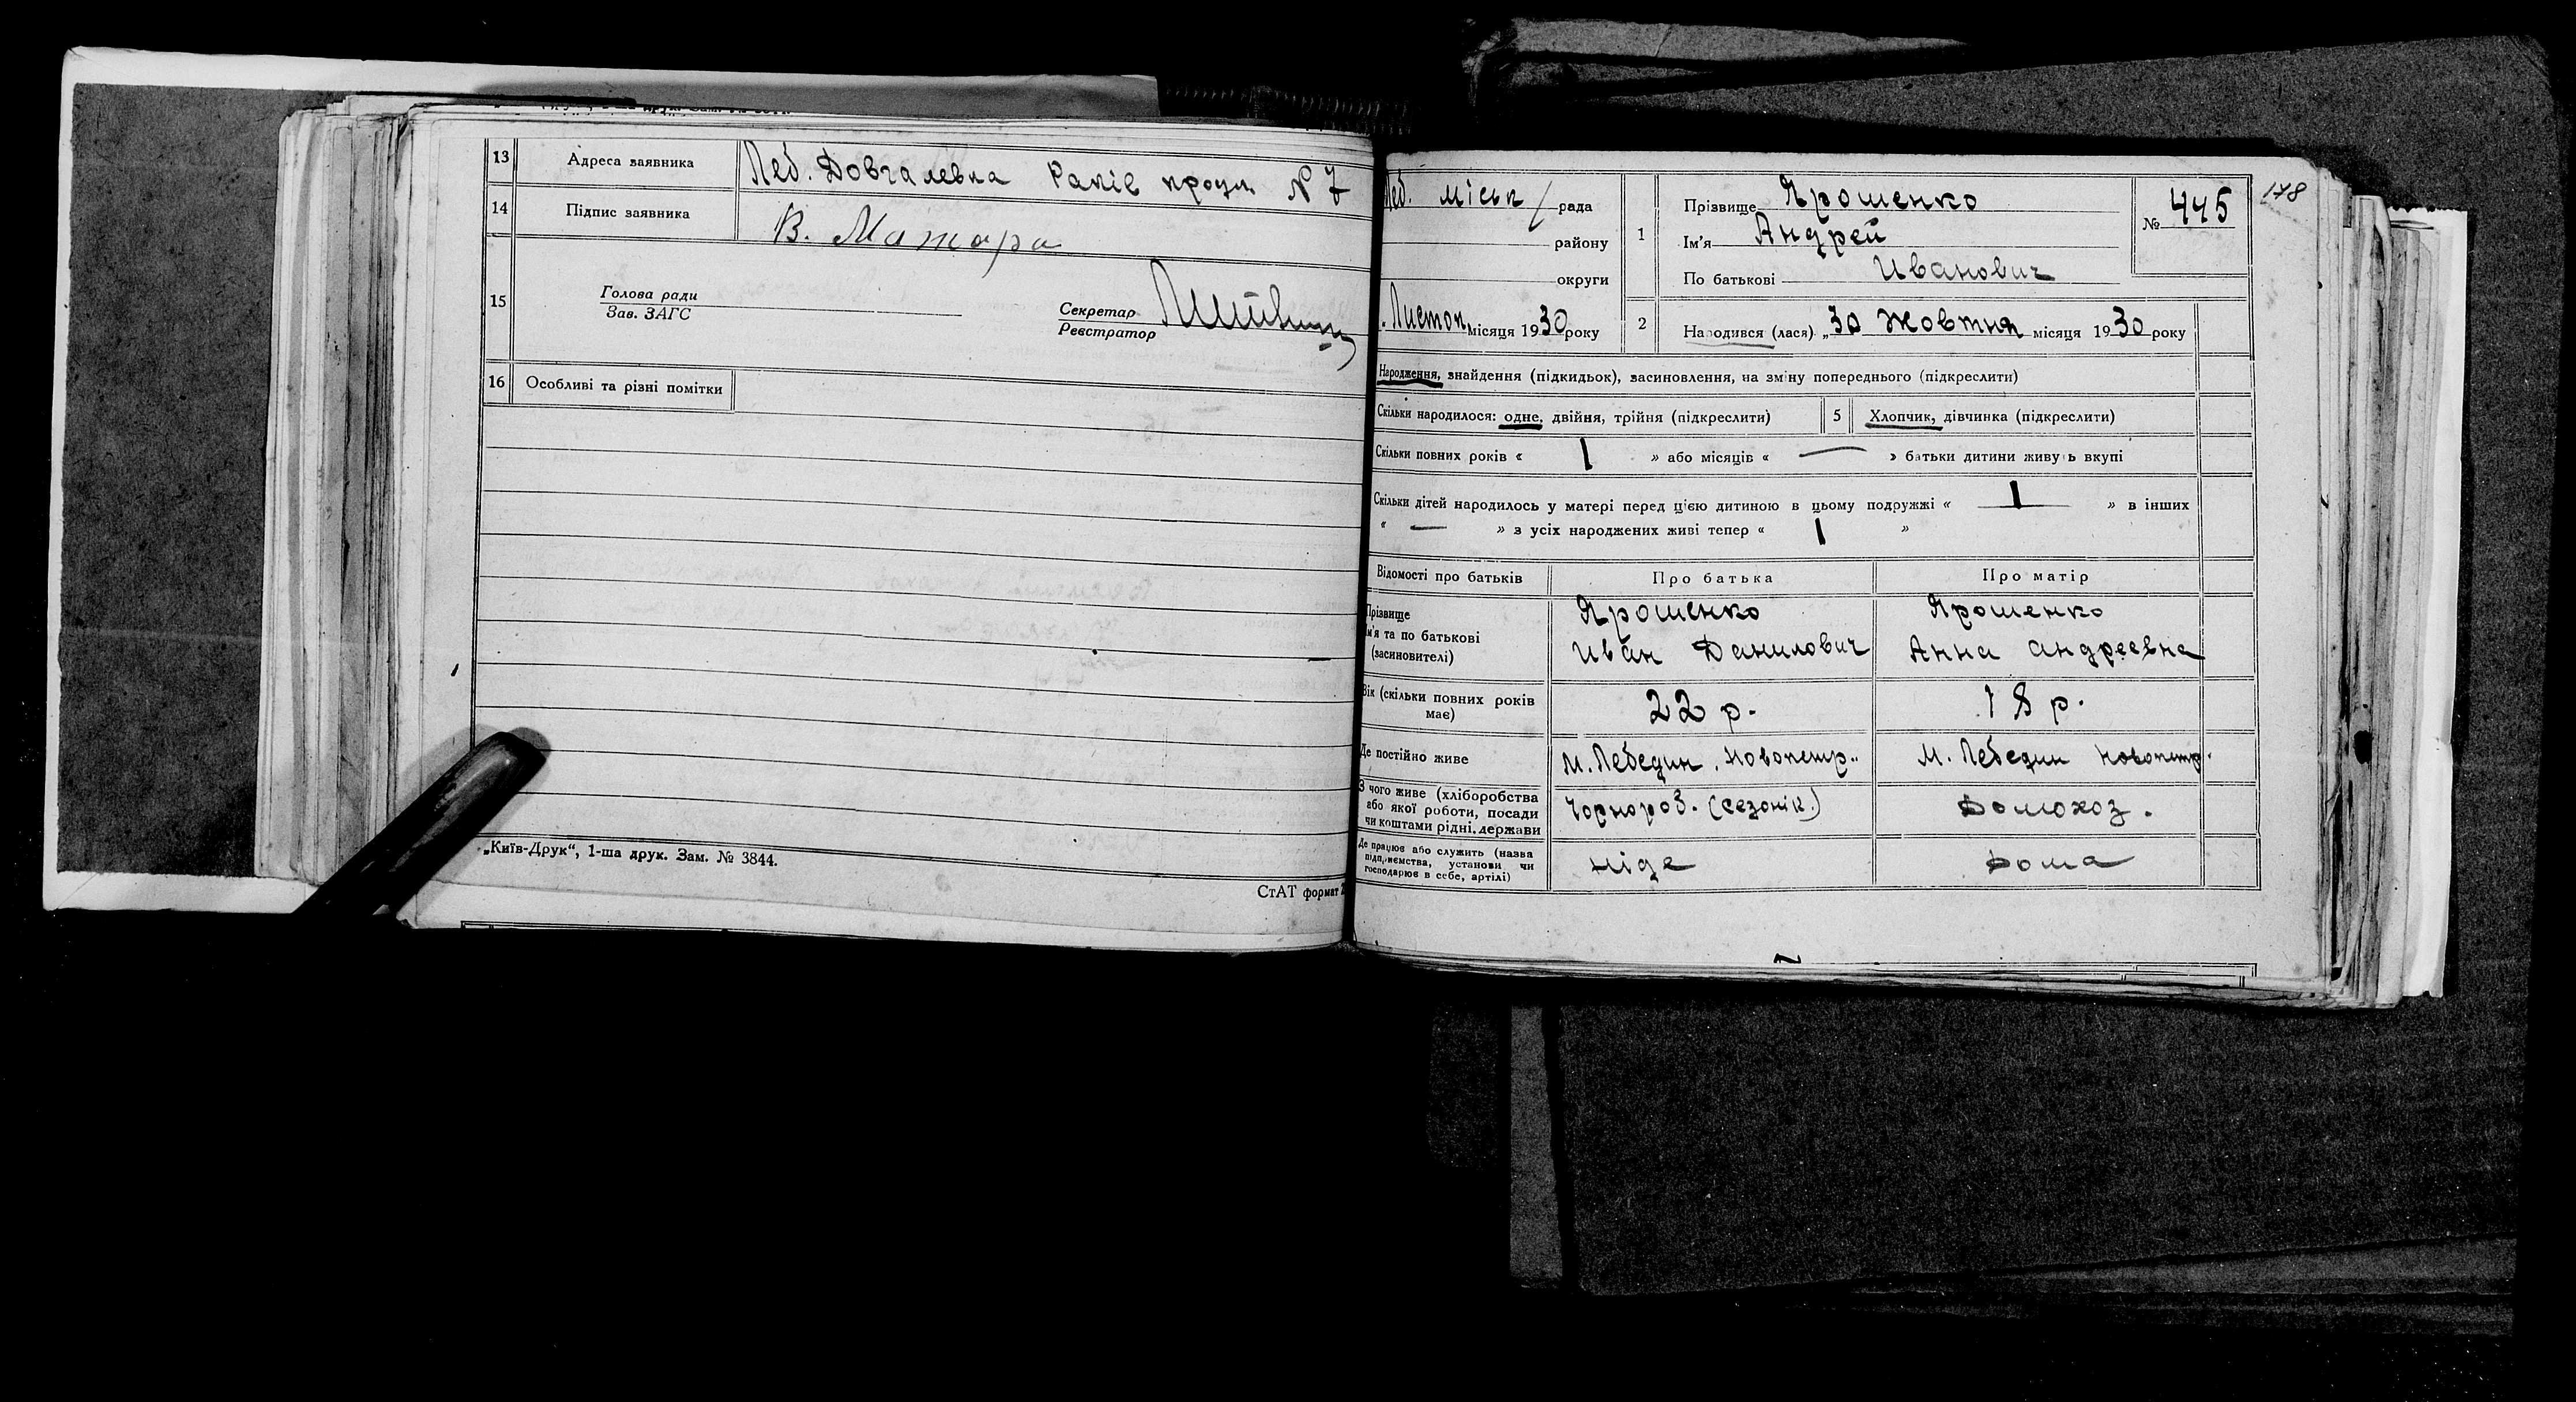 13 Адреса заявника Леб. Довгалевка Раків провул. № 7
14 Підпис заявника В. Мажара
15 Голова ради
Зав. ЗАГС
Секретар
Реєстратор
16 Особливі та різні помітки
„Київ-Друк“, 1-ша друк. Зам. № 3844.
СтАТ формат
178
Леб. міськ рада
району
округи
Листоп місяця 1930 року
1 Прізвище Ярошенко
Ім'я Андрей
По батькові Иванович
№ 445
2 Народився (лася) „30 Жовтня місяця 1930 року
Народження, знайдення (підкидьок), засиновлення, на зміну попереднього (підкреслити)
Скільки народилося: одне, двійня, трійня (підкреслити) 5 Хлопчик, дівчинка (підкреслити)
Скільки повних років « 1 » або місяців « — » батьки дитини живуть вкупі
Скільки дітей народилось у матері перед цією дитиною в цьому подружжі « 1 » в інших
« — » з усіх народжених живі тепер « 1 »
Відомості про батьків Про батька Про матір
Прізвище Ярошенко Ярошенко
Ім'я та по батькові Иван Данилович Анна Андреевна
(засиновителі)
Вік (скільки повних років має) 22 р. 18 р.
Де постійно живе м. Лебедин. Новопетр.. М. Лебедин Новопетр.
З чого живе (хліборобства
або якої роботи, посади
чи коштами рідні, держави Чорнороб. (сезонік.) Домохоз.
Де працює або служить (назва
підприємства, установи чи
господарює в себе, артілі) ніде Дома